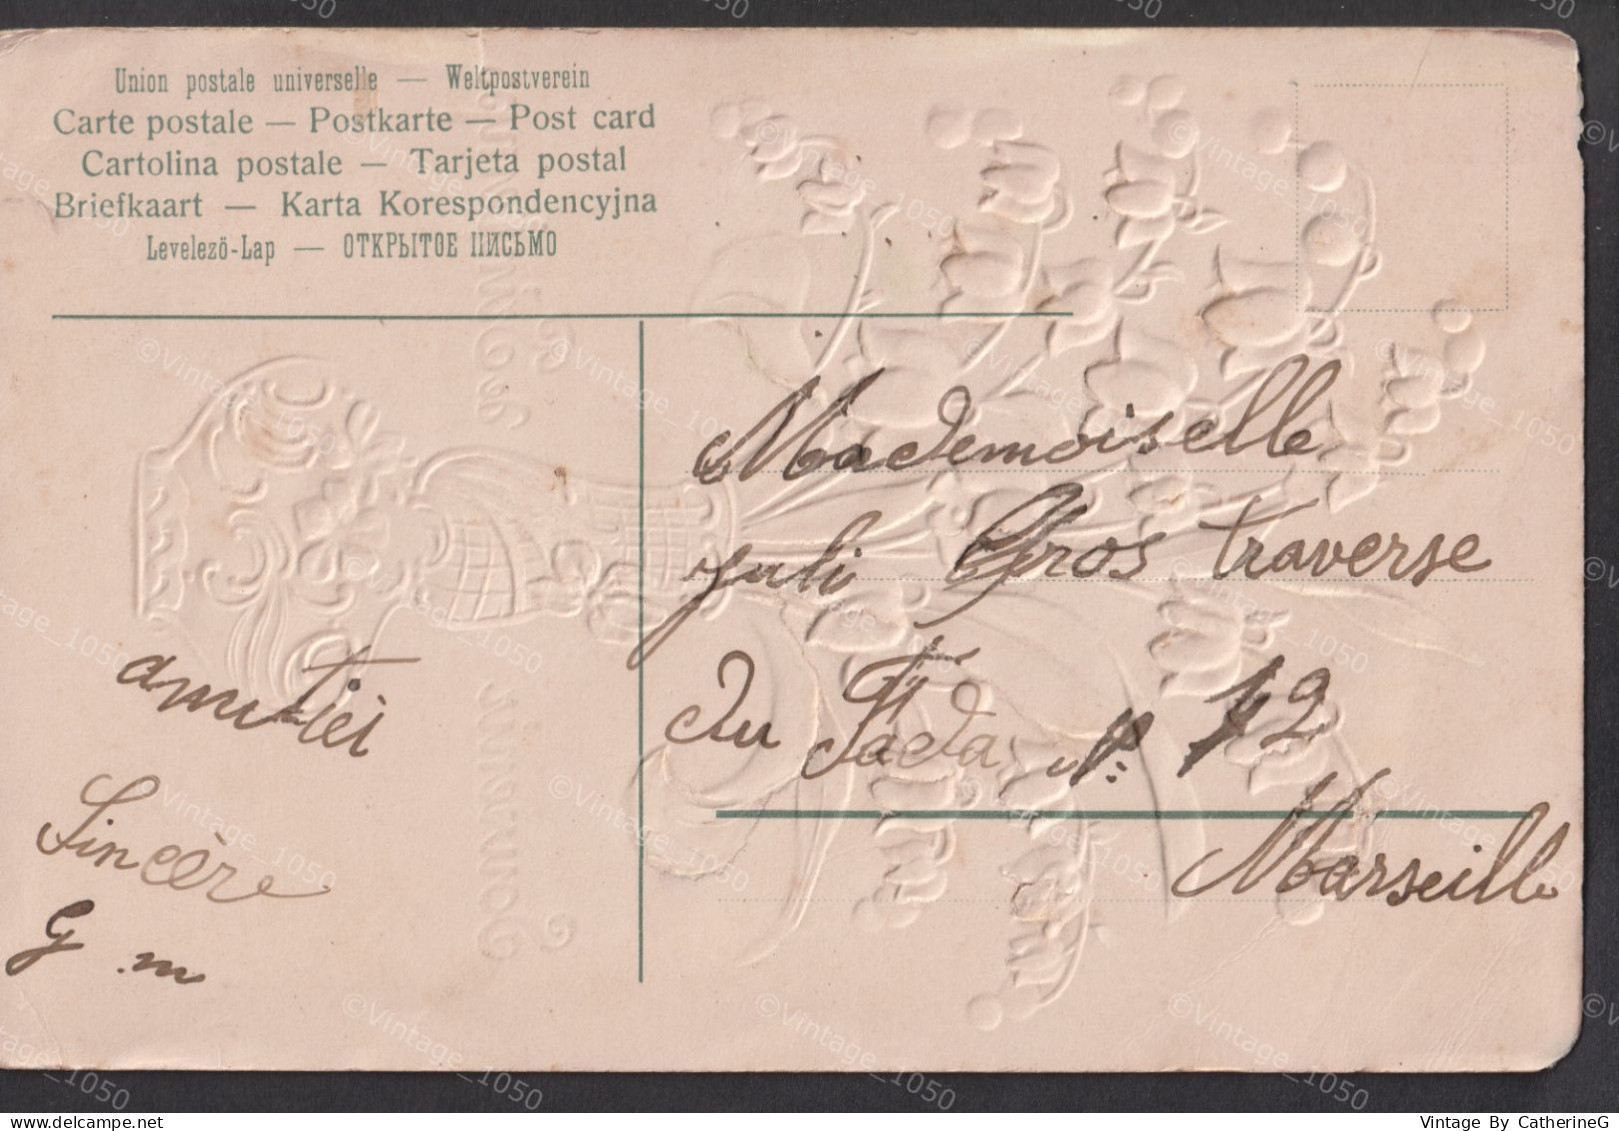 Union postale universelle — Weltpostverein
Carte postale — Postkarte — Post card
Cartolina postale — Tarjeta postal
Briefkaart — Karta Korespondencyjna
Levelező-Lap — ОТКРЫТОЕ ПИСЬМО
Mademoiselle
juli Gros traverse
du Fada N° 12
Marseille
amitiéi
Sincère
G. m
Souvenir
©Vintage_1050
Vintage By CatherineG